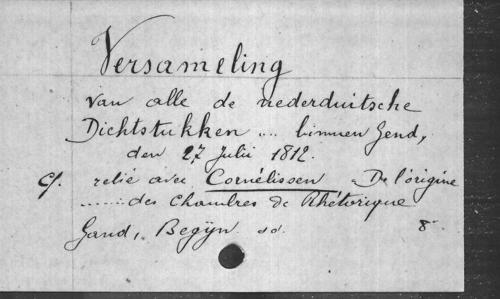 Versameling
van alle de nederduitsche
Dichtstukken ... binnen Gend,
den 27 Julii 1812.
Cf. relié avec Cornélissen - De l'origine
...... des Chambres de Rhétorique
Gand, Begÿn sd. 8°